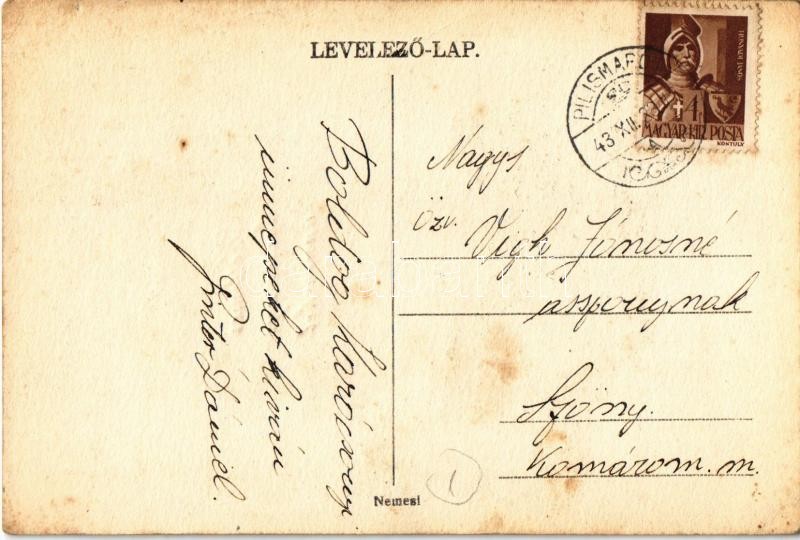 LEVELEZŐ-LAP.
HUNYADI JÁNOS
4
MAGYAR KIR. POSTA
KONTULY
PILISMARÓ
43 XII. 2
Boldog karácsonyi
ünnepeket kíván
Pintér Dániel.
Nagys
özv. Vigh Jánosné
asszonynak
Szőny.
Komárom. m.
1
Nemesi